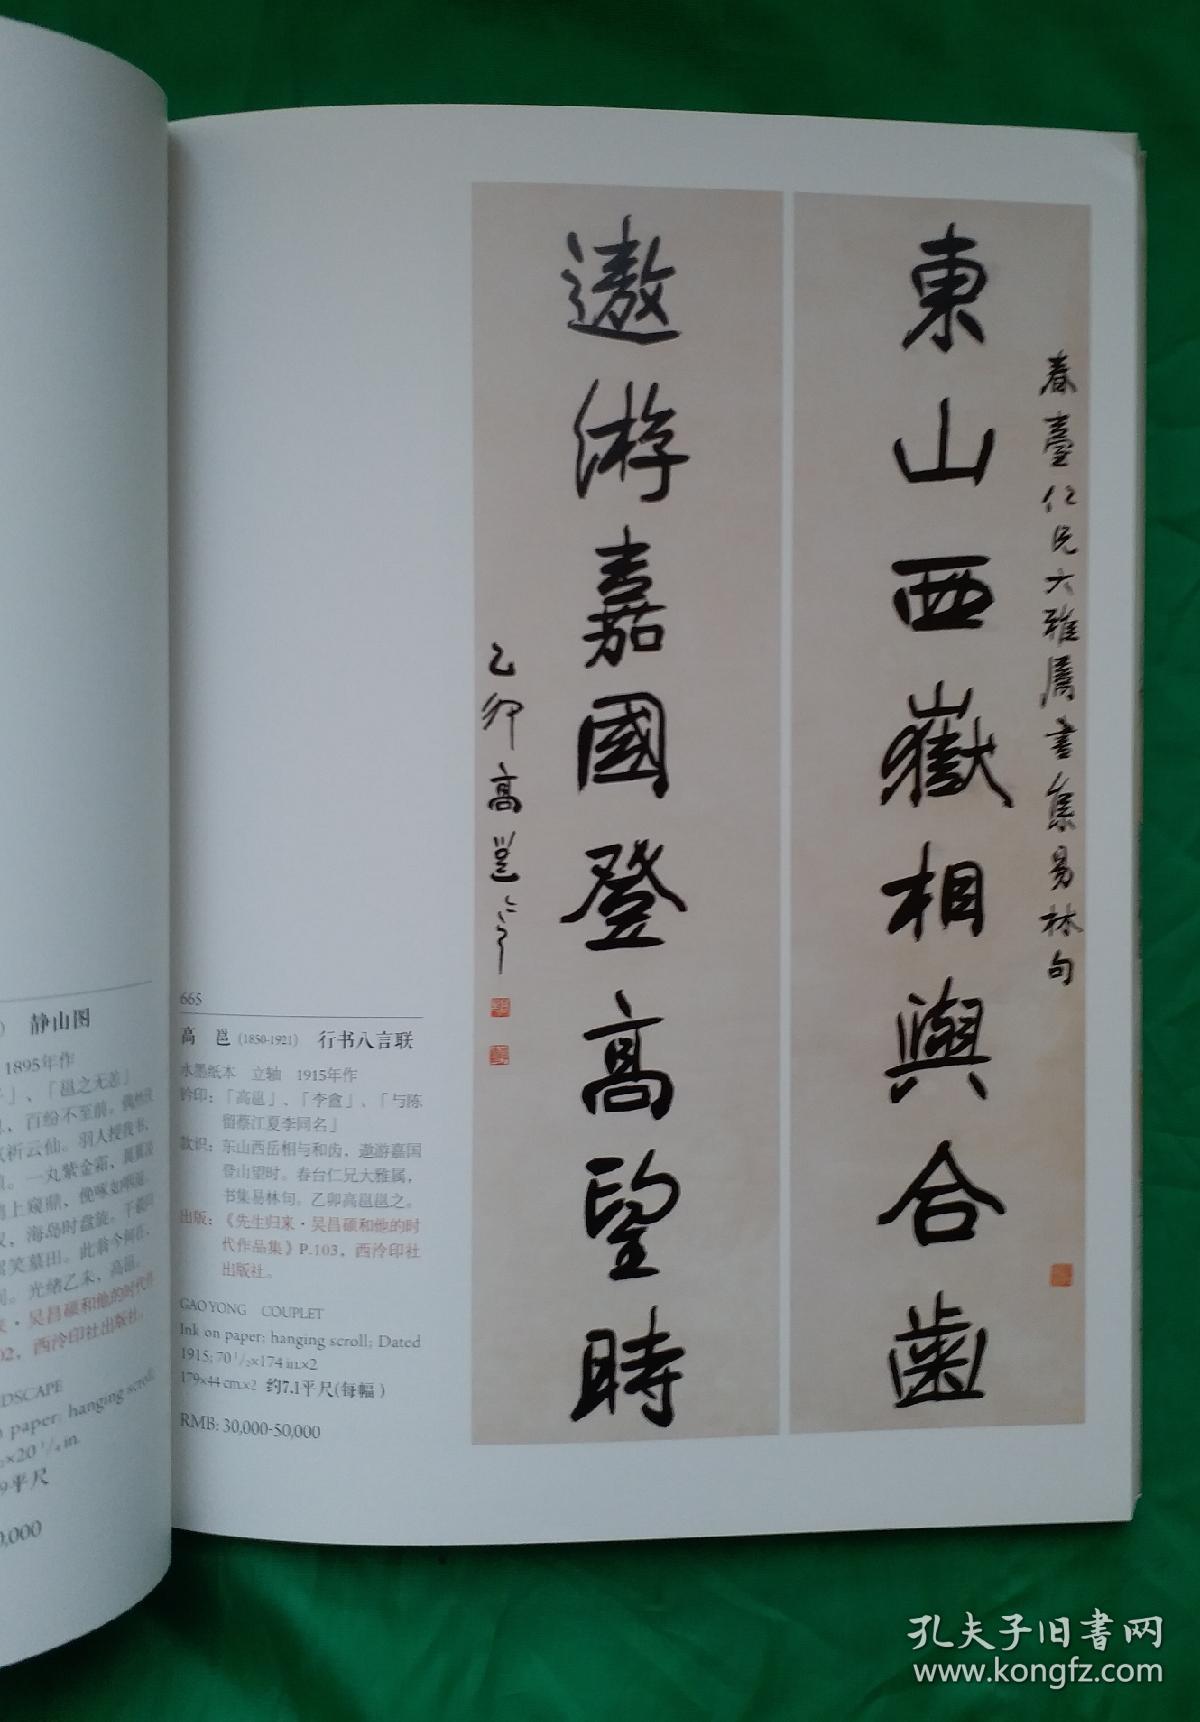 東山西嶽相與合齒
春臺仁兄大雅屬書集易林句
遨游嘉國登高望時
乙卯高邕
665
高 邕 (1850-1921) 行书八言联
水墨纸本 立轴 1915年作
钤印：「高邕」、「李盦」、「与陈
留蔡江夏李同名」
款识：东山西岳相与和齿，遨游嘉国
登山望时。春台仁兄大雅属，
书集易林句。乙卯高邕邕之。
出版：《先生归来·吴昌硕和他的时
代作品集》P.103，西泠印社
出版社。
GAO YONG COUPLET
Ink on paper; hanging scroll; Dated
1915; 70 1/2×174 in.×2
179×44 cm.×2 约7.1平尺(每幅)
RMB: 30,000-50,000
) 静山图
1895年作
」、「邕之无恙」
、百纷不至前。偶然
祈云仙。羽人授我书，
。一丸紫金霜，
上窥鼎，
，海岛时盘旋。
笑墓田。此翁今何在，
。光绪乙未，高邕。
·吴昌硕和他的时代作
02，西泠印社出版社。
DSCAPE
paper; hanging scroll;
×20 1/4 in.
9平尺
0,000
孔夫子旧书网
www.kongfz.com